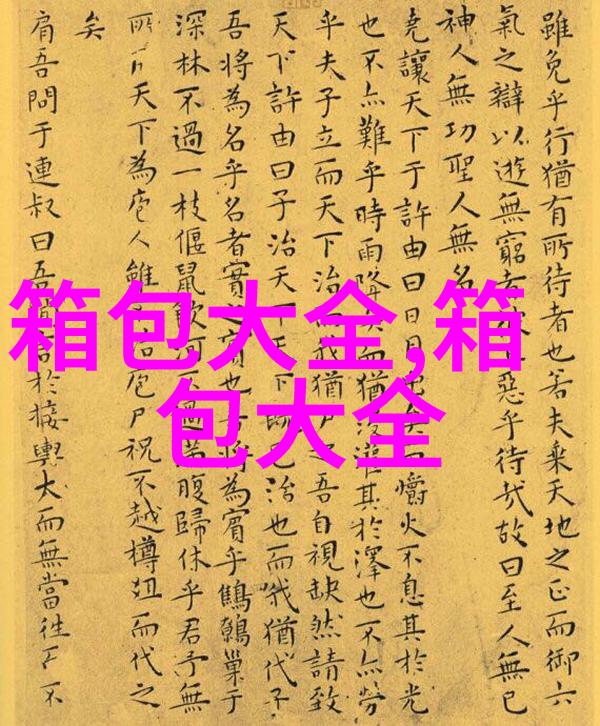 箱包大全,箱
包大全
雖免乎行猶有所待者也若夫乘天地之正而御六
氣之辯以遊無窮者惡乎待哉故曰至人無己
神人無功聖人無名
堯讓天下于許由曰日月矣而嚼火不息其於光
也不亦難乎時雨降矣而猶浸灌其於澤也不亦勞
乎夫子立而天下治而我猶尸之吾自視缺然請致
天下許由曰子治天下天下既已治也而我猶代子
吾將為名乎名者實之賓也吾將為賓乎鷦鷯巢于
深林不過一枝偃鼠飲河不過腹歸休乎君予無
所天下為庖人雖不治庖尸祝不越樽俎而代之
矣
肩吾問于連叔曰吾聞言於接輿大而無當往不